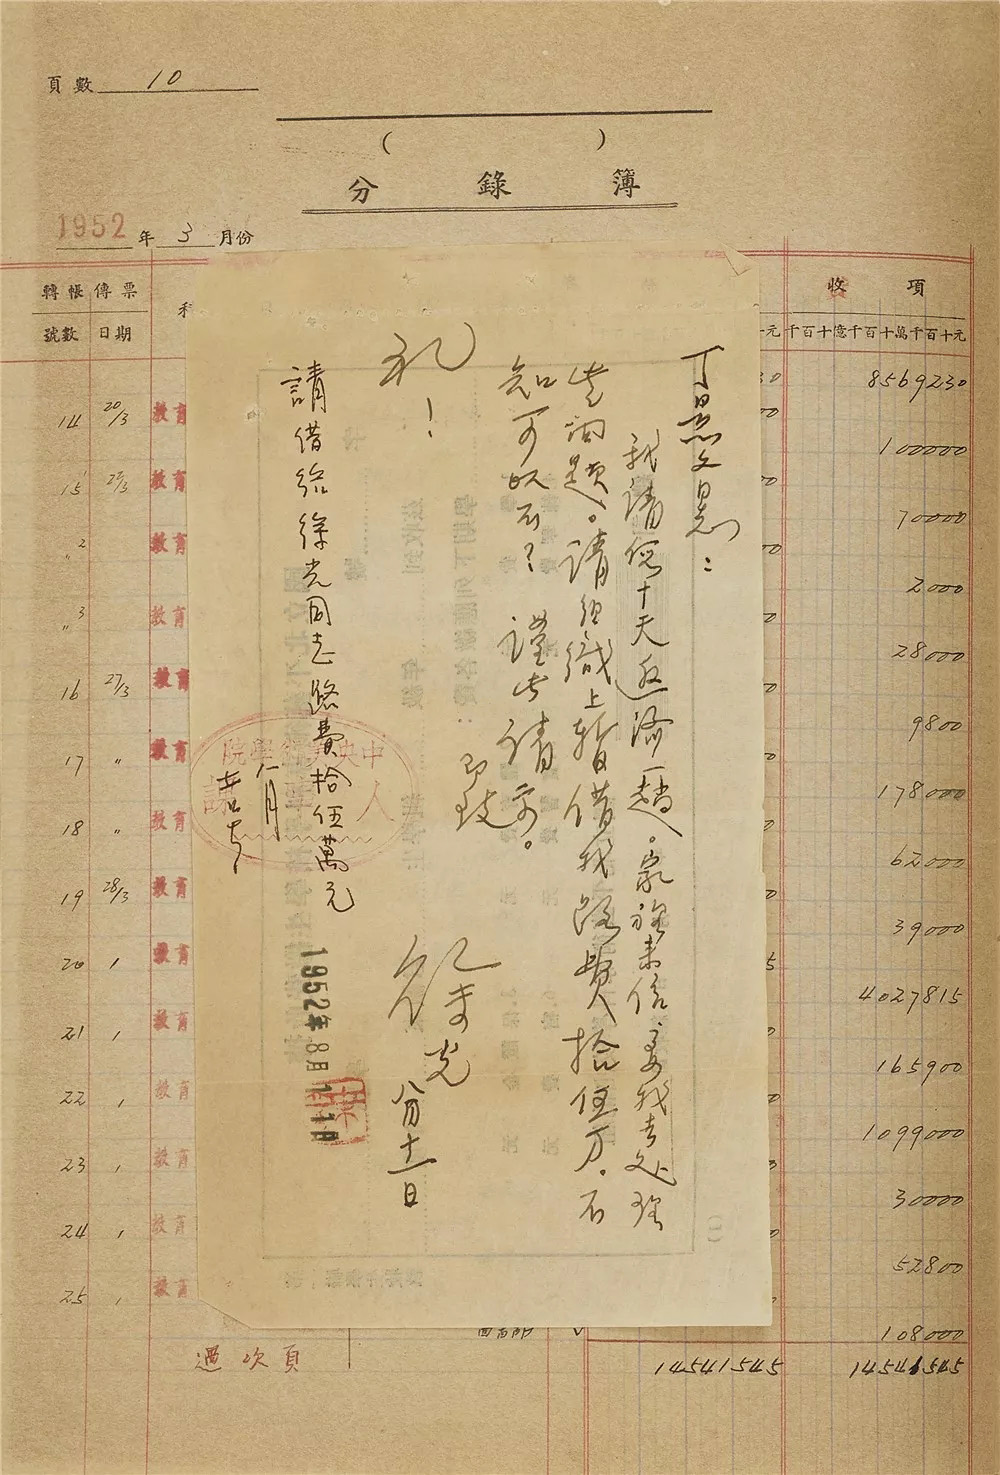 頁數 10
( )
分錄簿
1952年3月份
轉帳傳票
號數 日期
收項
千百十億千百十萬千百十元
8569230
14 20/3 教育
100000
15 27/3 教育
70000
〃2 教育
2000
〃3 教育
28000
16 27/3 教育
9800
17 〃 教育
178000
18 〃 教育
62000
19 28/3 教育
39000
20 教育
4027815
21 教育
165900
22 教育
1099000
23 教育
30000
24 教育
52800
25 教育
108000
過次頁
14541545 14541545
我請假十天返濟一趟。家裡來信要我去处理
些问題。请組織上暫借我路費拾伍万。不
知可以否？謹此请示。
即致
礼！
徐光
八月十一日
請借给徐光同志路費拾伍萬元
中央美術學院
人事
1952年8月11日